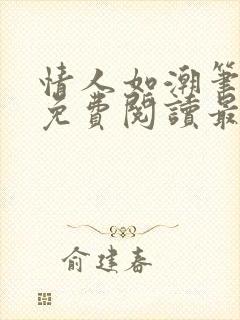 情人如潮筆
免費閱讀最
俞建春